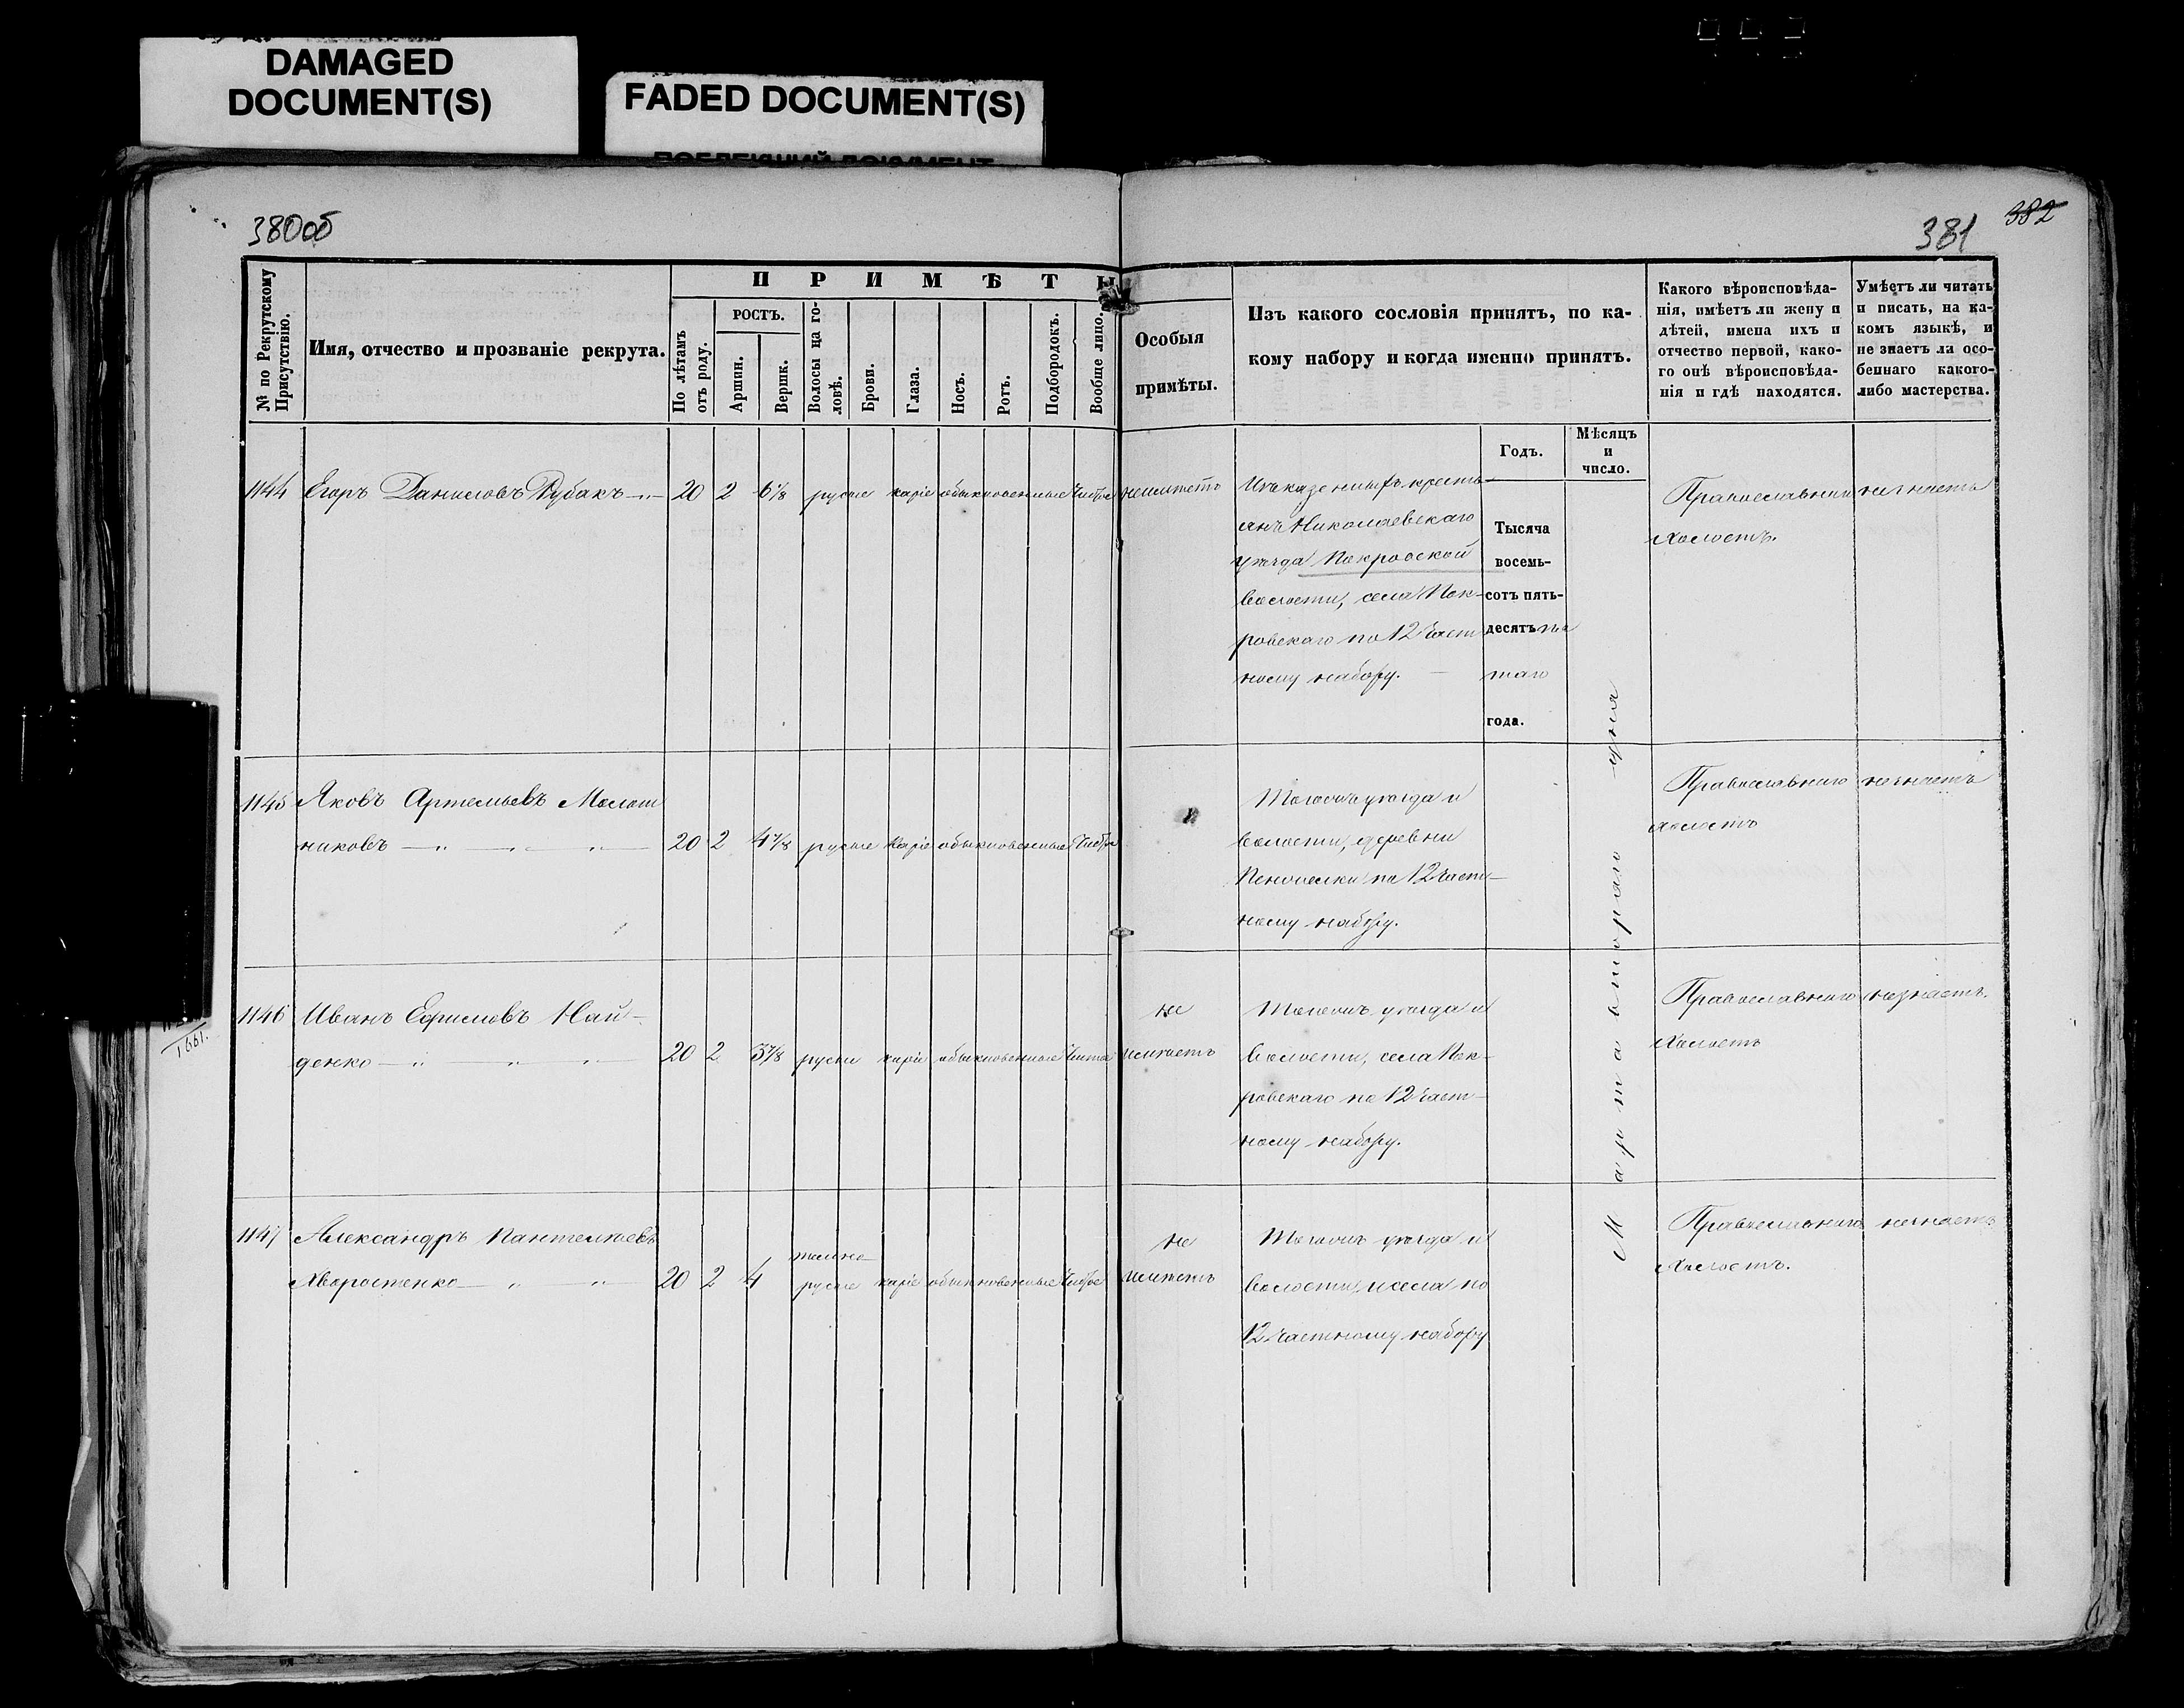 DAMAGED
DOCUMENT(S)
FADED DOCUMENT(S)
380об
381 382
№ по Рекрутскому
Присутствію.
Имя, отчество и прозваніе рекрута.
ПРИМѢТЫ
По лѣтамъ
отъ роду.
РОСТЪ.
Аршин.
Вершк.
Волосы на го-
ловѣ.
Брови.
Глаза.
Носъ.
Ротъ.
Подбородокъ.
Вообще лицо.
Особыя
примѣты.
Изъ какого сословія принятъ, по ка-
кому набору и когда именно принятъ.
Годъ.
Мѣсяцъ
и
число.
Какого вѣроисповѣда-
нія, имѣетъ ли жену и
дѣтей, имена ихъ и
отчество первой, како-
го онѣ вѣроисповѣда-
нія и гдѣ находятся.
Умѣетъ ли читать
и писать, на ка-
комъ языкѣ, и
не знаетъ ли осо-
беннаго какого-
либо мастерства.
1144 Егоръ Даниловъ Рубакъ 20 2 6 1/8 русые каріе обыкновенные Чистое неимѣетъ
Изъ казенныхъ кресть-
янъ Николаевскаго
уѣзда Покровской
волости, села Пок-
ровскаго по 12 Част
ному набору.
Тысяча
восемь-
сотъ пять-
десятъ пя
таго
года.
Марта втораго дня
Православнаго незнаетъ
Холостъ.
1145 Яковъ Артемьевъ Молот
никовъ 20 2 4 7/8 русые Каріе обыкновенные Чистое
Тогожъ уѣзда и
волости, деревни
по 12 Части-
ному набору.
Православнаго незнаетъ
Холостъ
1146 Иванъ Ефимовъ Най-
денко 20 2 5 7/8 русыя каріе обыкновенные Чистое
не
имѣетъ
Тогожъ уѣзда и
волости, села Пок-
ровскаго по 12 Част-
ному набору.
Православнаго незнаетъ.
Холостъ
1661.
1147 Александръ Пантелѣевъ
Хворостенко 20 2 4 темно-
русые каріе обыкновенные Чистое
не
имѣетъ
Тогожъ уѣзда и
волости, и села по
12 Частному набору
Православнаго незнаетъ
Холостъ.